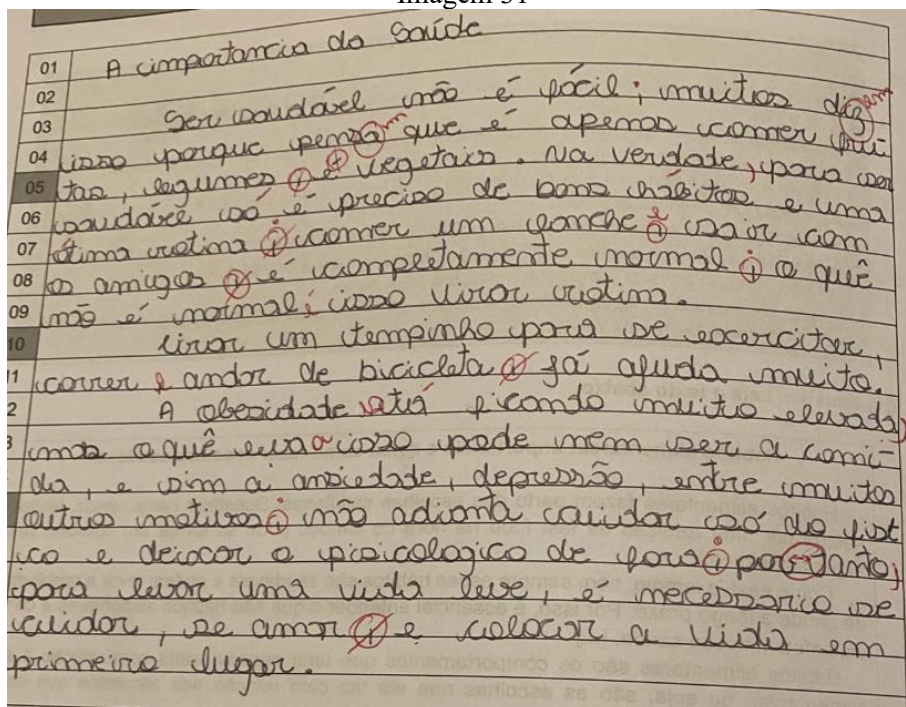 Imagem 31
01 A importancia da Saúde
02
03 Ser saudável não é fácil; muitos dizam
04 isso porque pensam que é apenas comer fru-
05 tas, legumes e vegetais. Na verdade, para ser
06 saudável só é preciso de bons hábitos e uma
07 ótima rotina; comer um lanche e sair com
08 os amigos é completamente normal; o quê
09 não é normal; isso virar rotina.
10 tirar um tempinho para se excercitar,
11 correr e andar de bicicleta já ajuda muito.
2 A obesidade está ficando muito elevada,
3 mas o quê leva a isso pode nem ser a comi-
da, e sim a ansiedade, depressão, entre muitos
outros motivos; não adianta cuidar só do fisi
ico e deixar o pisicologico de fora; portanto,
para levar uma vida leve, é necessario se
cuidar, se amar e colocar a vida em
primeiro lugar.